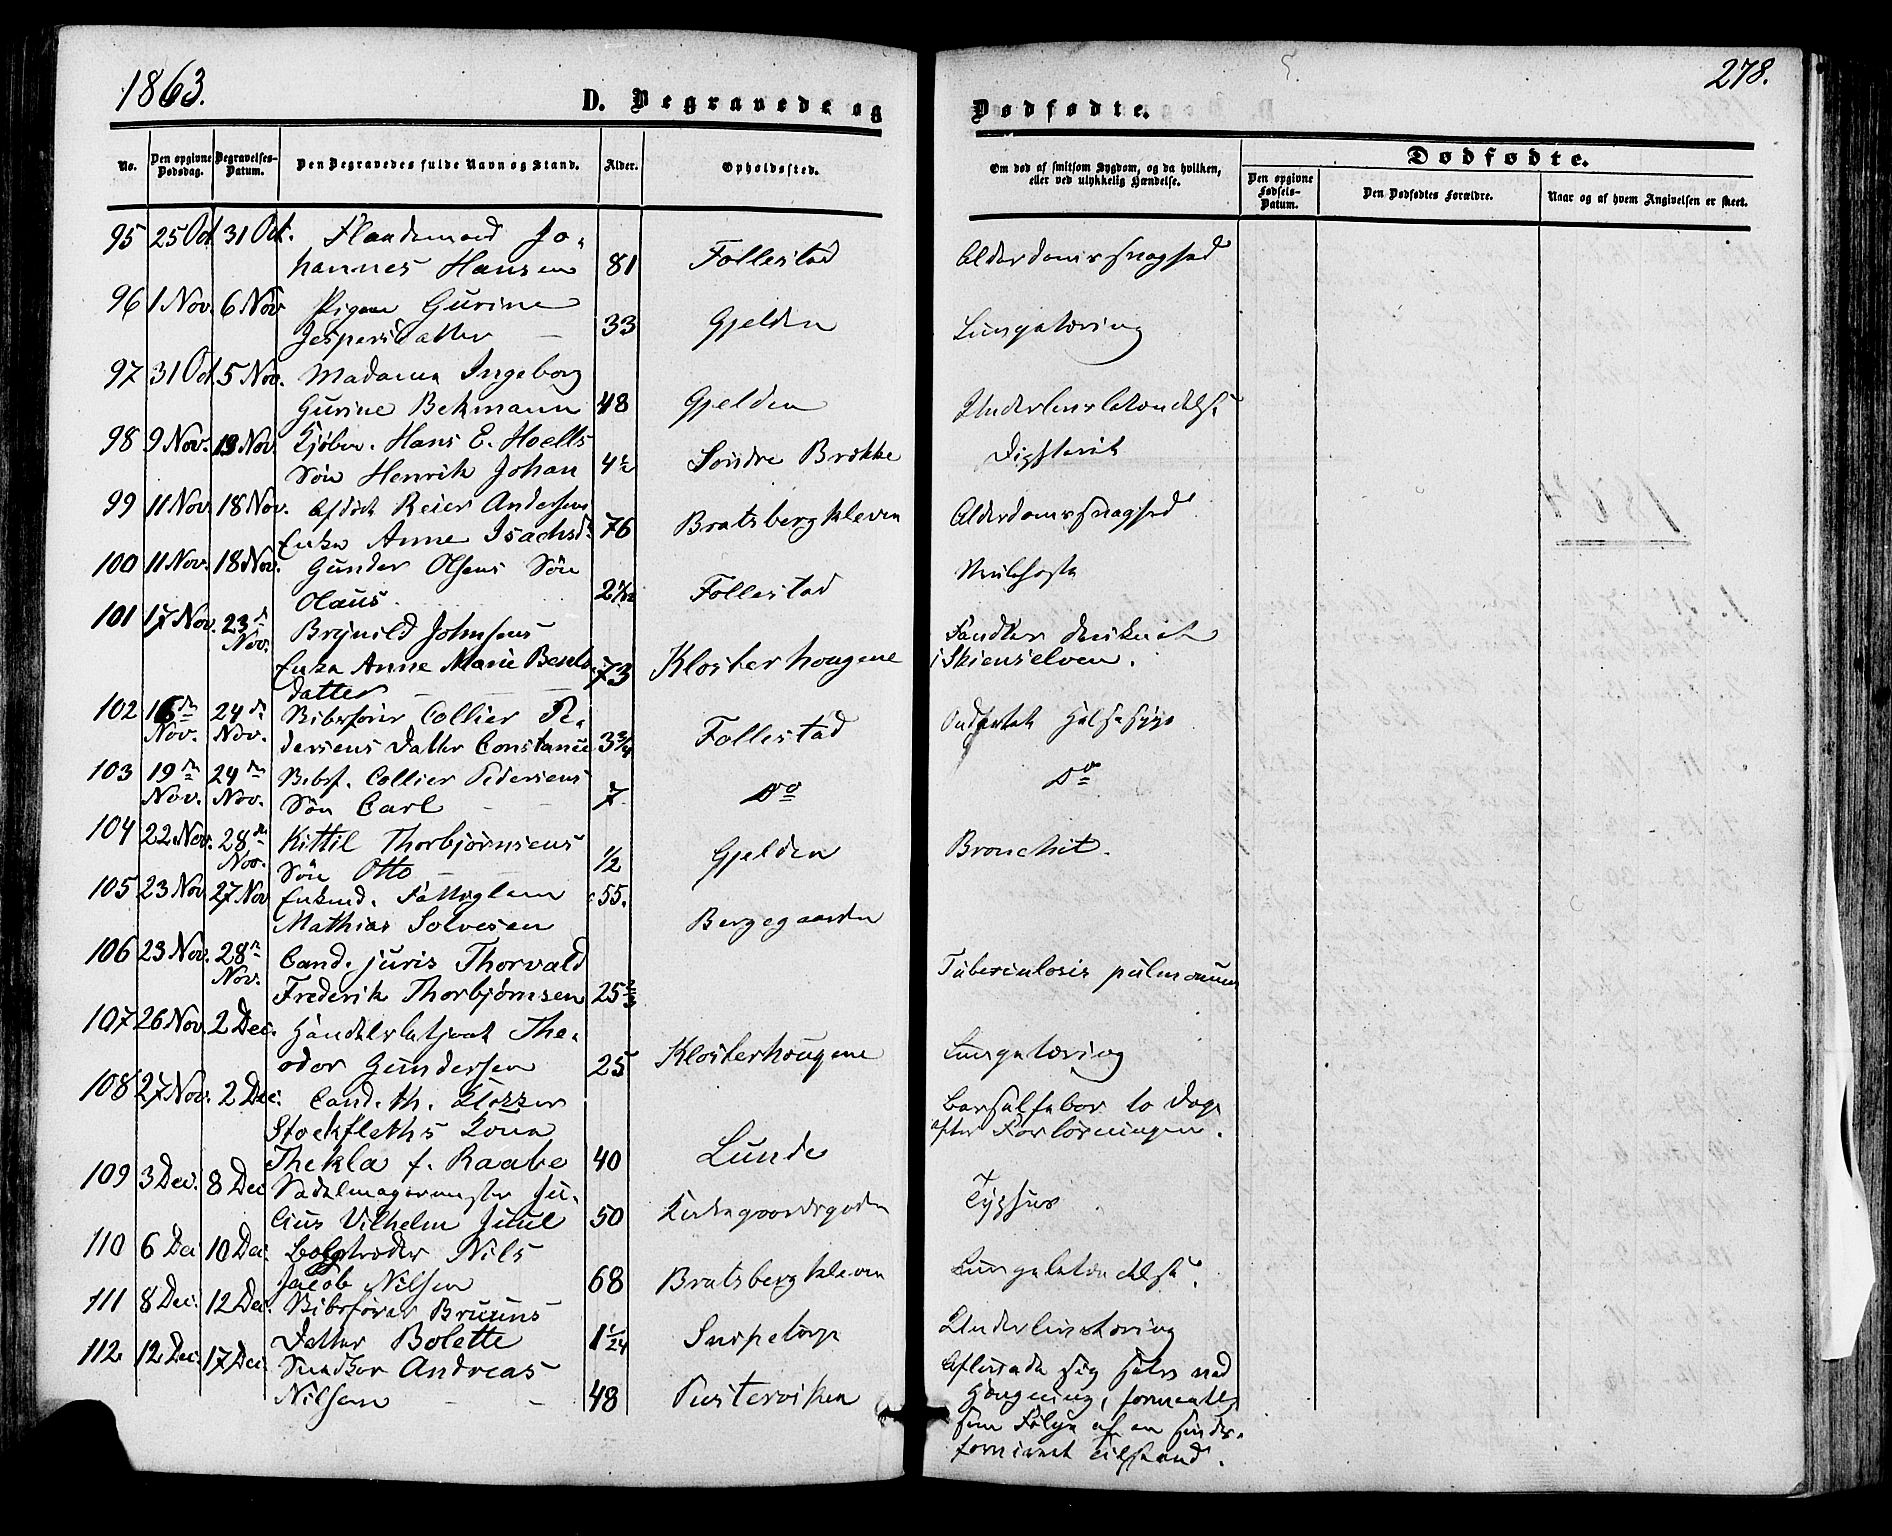 1863.
D. Begravede og
Dødfødte.
278.
No.
Den opgivne Dødsdag.
Begravelses-Datum.
Den Begravedes fulde Navn og Stand.
Alder.
Opholdssted.
Om død af smitsom Sygdom, og da hvilken, eller ved ulykkelig Hændelse.
Dødfødte.
Den opgivne Fødsels-Datum.
Den Dødfødtes Forældre.
Naar og af hvem Angivelsen er skeet.
95 25 Oct 31 Oct. Jo-
hannes Hansen 81 Follestad Alderdomssvaghed
96 1 Nov. 6 Nov Pigen Gurine
Jespersdatter 33 Gjelden Lungetæring
97 31 Oct 5 Nov. Madame Ingeborg
Gurine Bekmann 48 Gjelden Underlivsbetændelse
98 9 Nov. 13 Nov. Kjøbm. Hans E. Hoells
Søn Henrik Johan 4½ Søndre Brekke Difterit
99 11 Nov 18 Nov. Afdøde Reier Andersens
Enke Anne Isachsd. 76 Bratsbergkleven Alderdomssvaghed
100 11 Nov. 18 Nov. Gunder Olsens Søn
Olaus. Follestad
101 17 Nov. 23de Nov. Brynild Johnsens
Enke Anne Marie Bents-
datter 73 Klosterhougene Fandtes druknet
i Skienselven.
102 16de Nov. 24de Nov. Skibsfører Collier Pe-
dersens Datter Constance 3¾ Follestad Ondartet Halssyge
103 19de Nov. 24de Nov. Skibsf. Collier Pedersens
Søn Carl 7 Do Do
104 22 Nov. 28de Nov. Kittil Thorbjørnsens
Søn Otto 1/2 Gjelden Bronchit.
105 23 Nov 27 Nov Enkemd. Fattiglem 55.
Mathias Solvesen Bergegaarden
106 23 Nov. 28de Nov. Cand. juris Thorvald
Frederik Thorbjørnsen 25 Tuberculosis pulmonum
107 26 Nov. 2 Dec. Handelsbetjent The-
odor Gundersen 25 Klosterhougene Lungetæring
108 27 Nov. 2 Dec. Cand. th.
Stockfleths Kone Barselfeber to Dage
efter Forløsningen.
Thekla f. Raabe 40 Lunde
109 3 Dec. 8 Dec Sadelmagermester Ju-
lius Vilhelm Juul 50 Kirkegaardsgaden Typhus
110 6 Dec 10 Dec. Nils
Jacob Nilsen 68 Bratsbergkleven Lungebetændelse.
111 8 Dec. 12 Dec. Skibsfører Bruuns
Datter Bolette 1 1/24 Snipetorp Underlivstæring
112 12 Dec. 17 Dec. Andreas
Nilsen 48 Pusterviken Aflivede sig selv ved
Hængning, formentlig
som Følge af en sinds-
forvirret Tilstand.